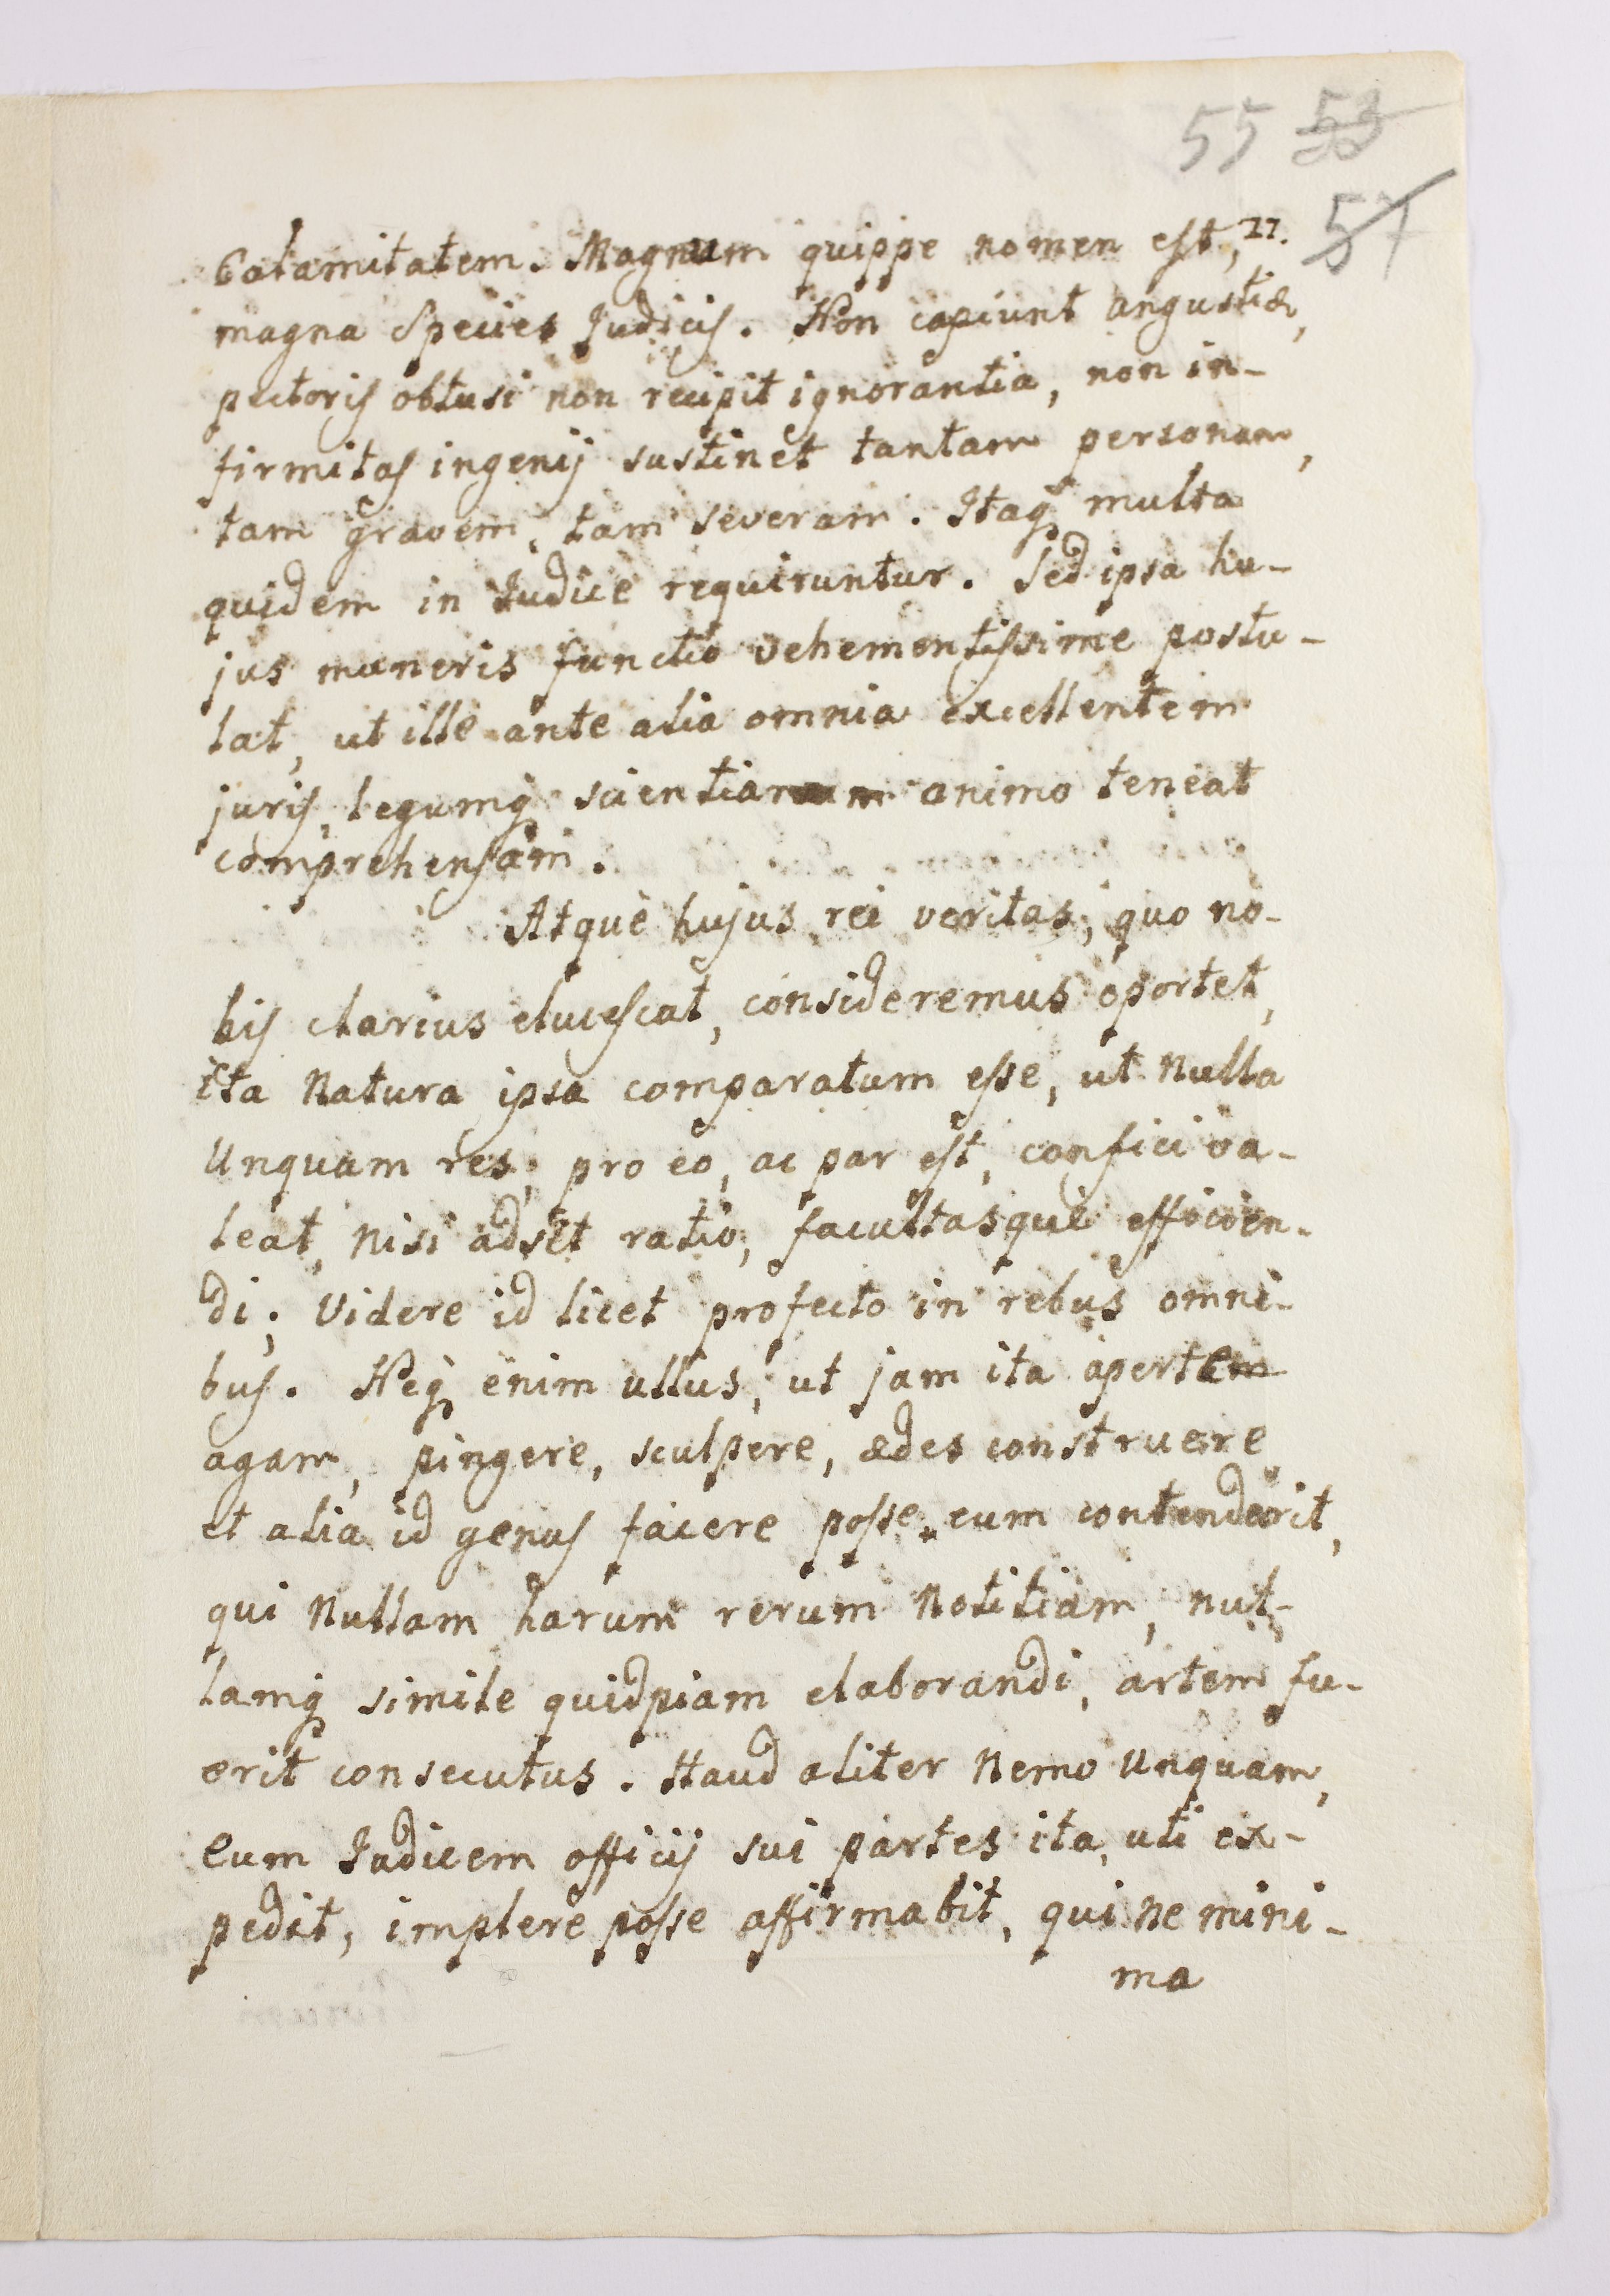 55 53
57
27.
Calamitatem. Magnum quippe nomen est,
magna Species Judicis. Non capiunt angustiæ,
pectoris obtusi non recipit ignorantia, non in-
firmitas ingenij sustinet tantam personam,
tam gravem, tam severam. Itaq multa
quidem in Judice requiruntur. Sed ipsa hu-
jus muneris functio vehementissime postu-
lat, ut ille ante alia omnia excellentem
juris, legumq scientiam animo teneat
comprehensam.
Atque hujus rei veritas, quo no-
bis clarius elucescat, consideremus oportet,
ita Natura ipsa comparatum esse, ut Nulla
Unquam res, pro eo, ac par est, confici va-
leat, Nisi adsit ratio, facultasque efficien-
di; Videre id licet profecto in rebus omni-
bus. Neq enim ullus, ut jam ita apertem
agam, pingere, sculpere, ædes construere
et alia id genus facere posse eum contenderit,
qui Nullam harum rerum Notitiam, nul-
lamq simile quidpiam elaborandi, artem fu-
erit consecutus. Haud aliter Nemo Unquam,
Eum Judicem officij sui partes ita, uti ex-
pedit, implere posse affirmabit, qui ne mini-
ma